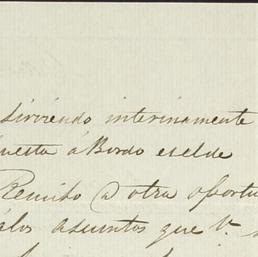 sirviendo interinamente
uesta á Bordo esel de
Remito a otra oportu
los asuntos que V.